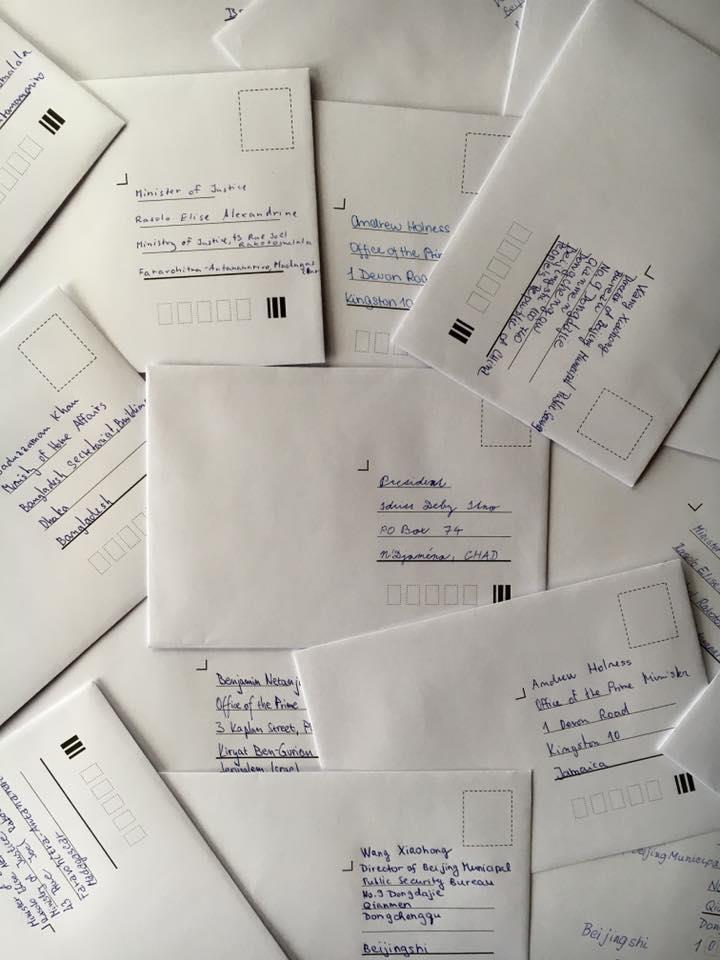 Minister of Justice
Rasolo Elise Alexandrine
Ministry of Justice, 43 Rue Joel
Rakotomalala
Faravohitra-Antananarivo, Madagas
Andrew Holness
Office of the Prim
1 Devon Roa
Kingston 10
Wang Xiaohong
Director of Beijing Municipal Public Secur
Bureau
No.9 Dongdajie
Qianmen
Dongchengqu
Beijingshi 100740
People's Republic of China
aduzzaman Khan
Ministry of Home Affairs
Bangladesh Secretariat, Building
Dhaka
Bangladesh
President
Idriss Deby Itno
PO Box 74
N'Djaména, CHAD
Minist
Rasolo Elise
Benjamin Netanj
Office of the Prime
3 Kaplan Street, P
Kiryat Ben-Gurion
Jerusalem, Israel
Andrew Holness
Office of the Prime Minister
1 Devon Road
Kingston 10
Jamaica
Minister of
Rasolo Elise Alex
Ministry of Justice
43 Rue Joel Rako
Faravohitra-Antananari
Madagascar
Wang Xiaohong
Director of Beijing Municipal
Public Security Bureau
No.9 Dongdajie
Qianmen
Dongchengqu
Beijingshi
eijing Municipa
Beijingshi
Qia
Don
10